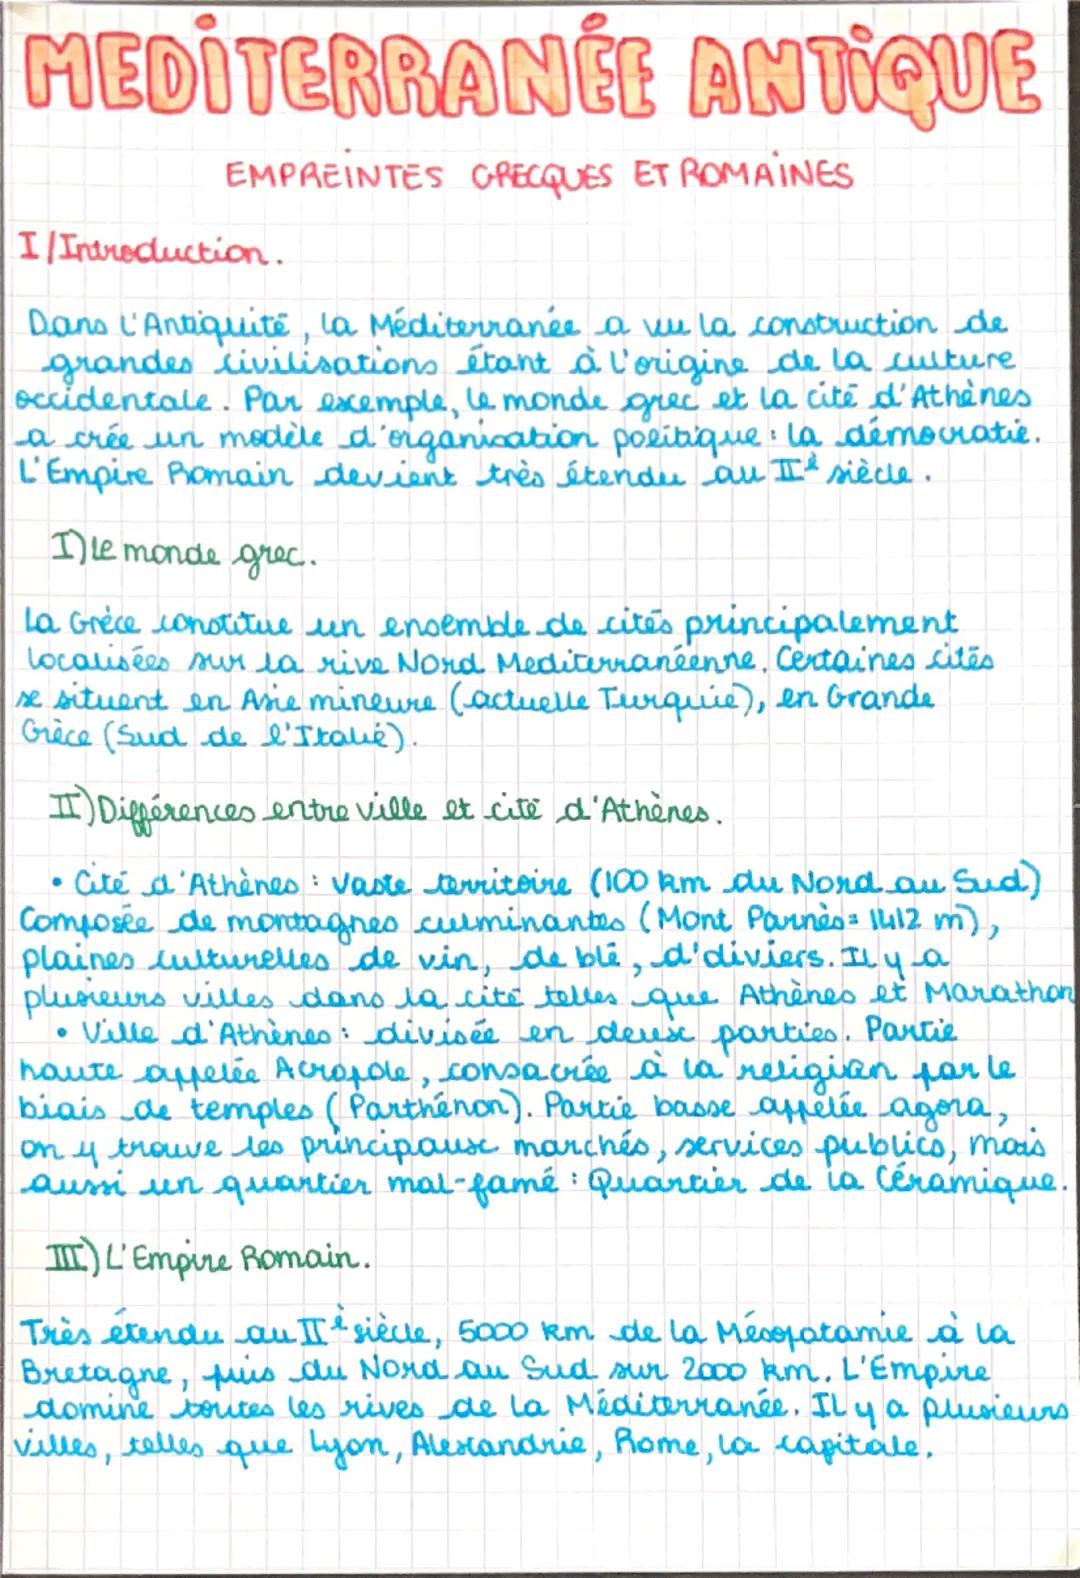 MEDITERRANÉE ANTIQUE
EMPREINTES GRECQUES ET ROMAINES
I/Introduction.
Dans l'Antiquité, la Méditerranée a vu la construction de
grandes civilisations étant à l'origine de la culture
occidentale. Par exemple, le monde grec et la cité d'Athènes
a crée un modèle d'organisation politique : la démocratie.
L'Empire Romain devient très étendu au IIè siècle.
I) Le monde grec.
La Grèce constitue un ensemble de cités principalement
localisées sur la rive Nord Mediterranéenne. Certaines cités
se situent en Asie mineure (actuelle Turquie), en Grande
Grèce (Sud de l'Italie).
II) Différences entre ville et cité d'Athènes.
• Cité d'Athènes : Vaste territoire (100 km du Nord au Sud)
Composée de montagnes culminantes (Mont Parnès = 1412 m),
plaines culturelles de vin, de blé, d'diviers. Il y a
plusieurs villes dans la cité telles que Athènes et Marathon
• Ville d'Athènes : divisée en deux parties. Partie
haute appelée Acropole, consacrée à la religion par le
biais de temples (Parthénon). Partie basse appelée agora,
on y trouve les principaux marchés, services publics, mais
aussi un quartier mal-famé : Quartier de la Céramique.
III) L'Empire Romain.
Très étendu au IIè siècle, 5000 km de la Mésopotamie à la
Bretagne, puis du Nord au Sud sur 2000 km. L'Empire
domine toutes les rives de la Méditerranée. Il y a plusieurs
villes, telles que Lyon, Alexandrie, Rome, la capitale.